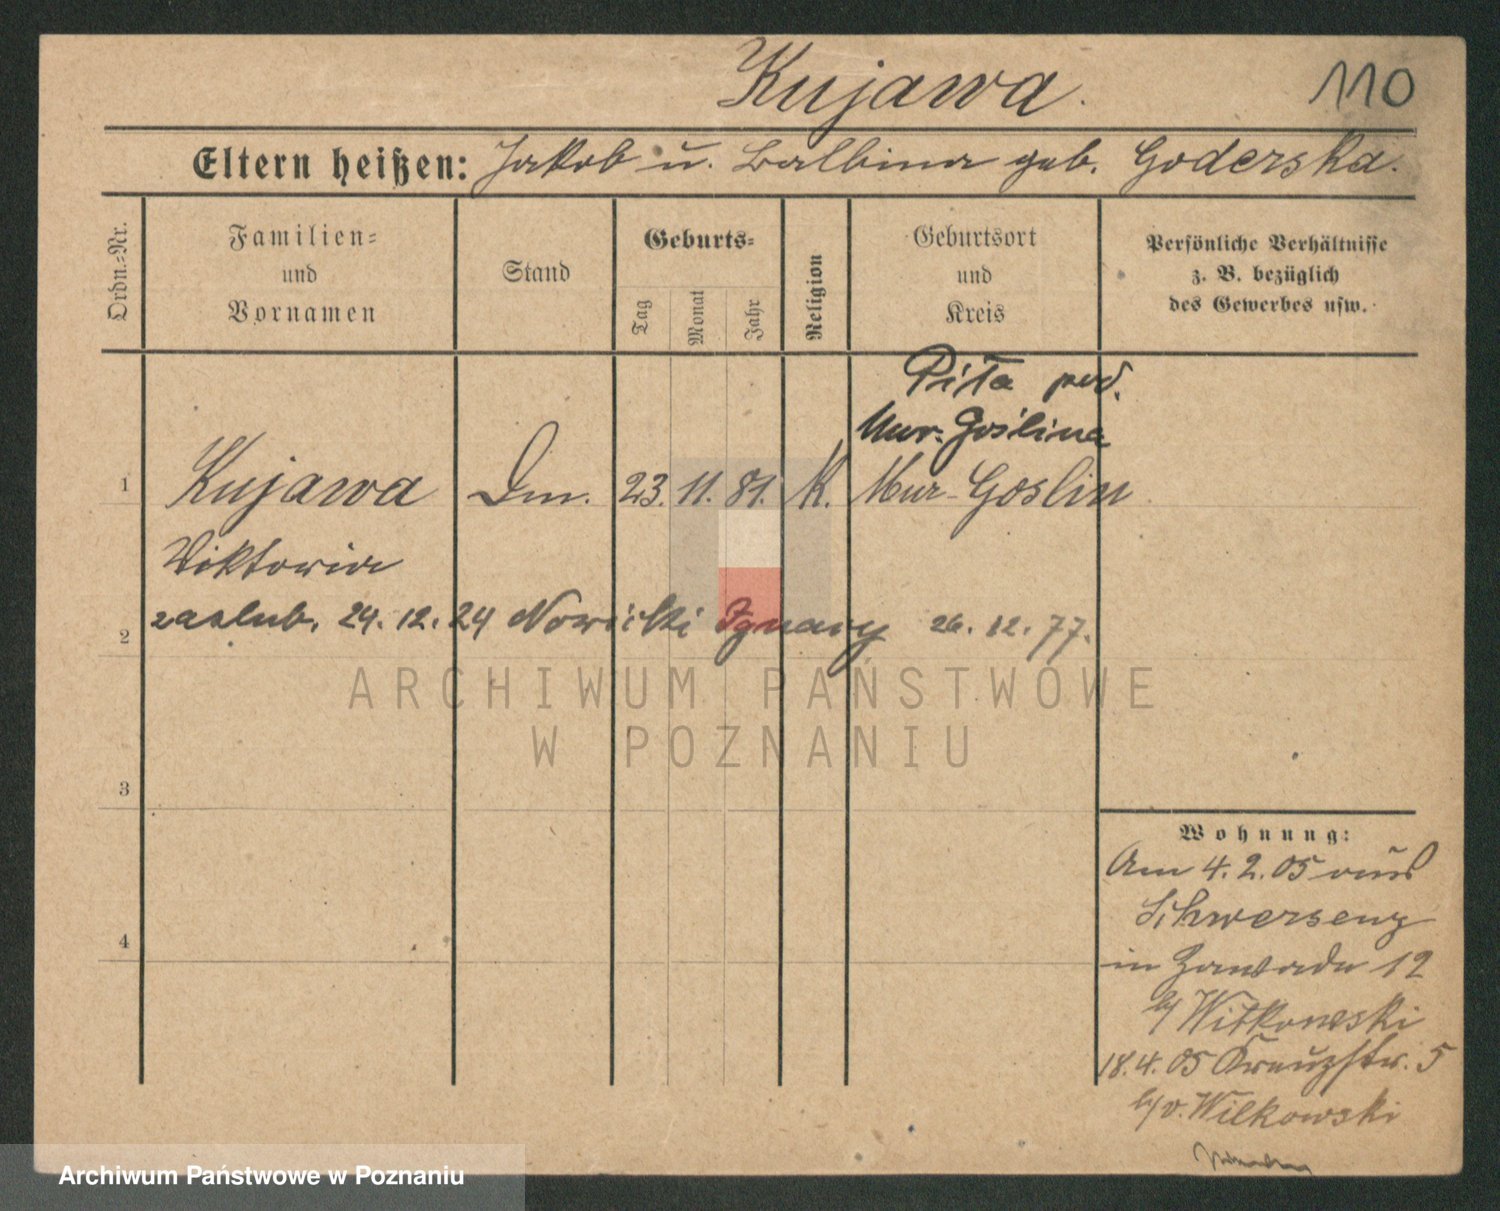 Kujawa. 110
Eltern heißen: Jakob u. Balbina geb. Goderska.
Ordn.-Nr.
Familien-
und
Vornamen
Stand
Geburts-
Tag
Monat
Jahr
Religion
Geburtsort
und
Kreis
Persönliche Verhältnisse
z. B. bezüglich
des Gewerbes usw.
Piła pod.
Mur. Goślina
1 Kujawa Dm. 23. 11. 81. K. Mur-Goslin
Wiktoria
2 zaslub. 24. 12. 24 Nowicki Ignacy 26. 12. 77.
ARCHIWUM PAŃSTWOWE
W POZNANIU
3
Wohnung:
Am 4. 2. 05 aus
Schwersenz
4
in Zawade 12
b/ Witkowski
18. 4. 05 Kreuzstr. 5
b/ v. Wilkowski
Archiwum Państwowe w Poznaniu